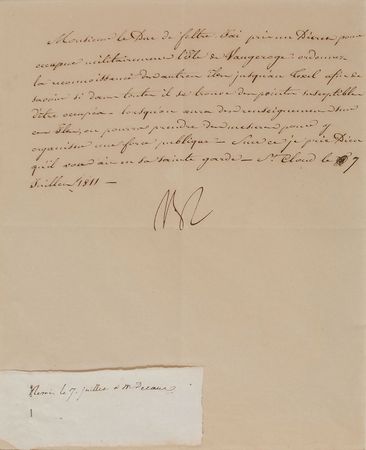 Monsieur le Duc de feltre J'ai pris un Décret pour
occuper militairement l'Ile de Vangeroge: ordonnez
la reconnoissance des autres Iles jusqu'au Texel afin de
savoir si dans toute il se trouve des points susceptibles
d'être occupés - lorsqu'on aura des renseignemens sur
ces Iles, on pourra prendre des mesures pour y
organiser une force publique - Sur ce je prie Dieu
qu'il vous ait en sa sainte garde - St Cloud le 7
Juillet 1811 -
le 7. juillet à Mr Decaux